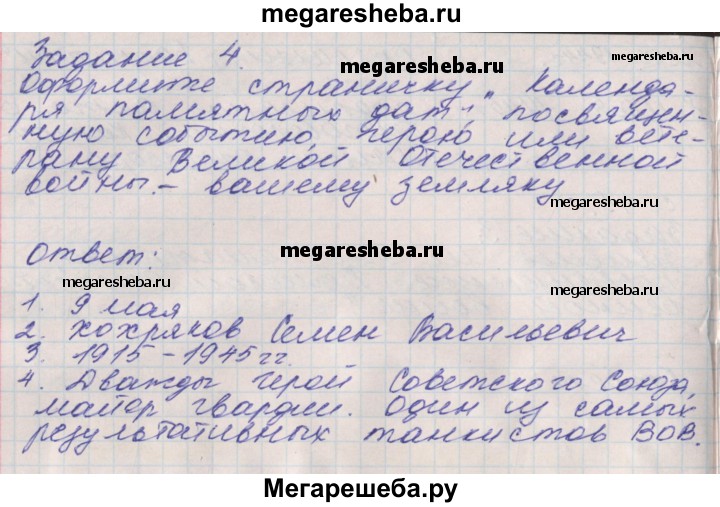 megaresheba.ru
Задание 4.
megaresheba.ru
megaresheba.ru
Оформите страничку „Календа-
ря памятных дат", посвящен-
ную событию, герою или вете-
рану Великой Отечественной
войны. – вашему земляку
megaresheba.ru
Ответ:
megaresheba.ru
megaresheba.ru
1. 9 мая
2. Хохряков Семен Васильевич
3. 1915 – 1945 гг.
4. Дважды Герой Советского Союза,
майор гвардии. Один из самых
результативных танкистов ВОВ.
Мегарешеба.ру